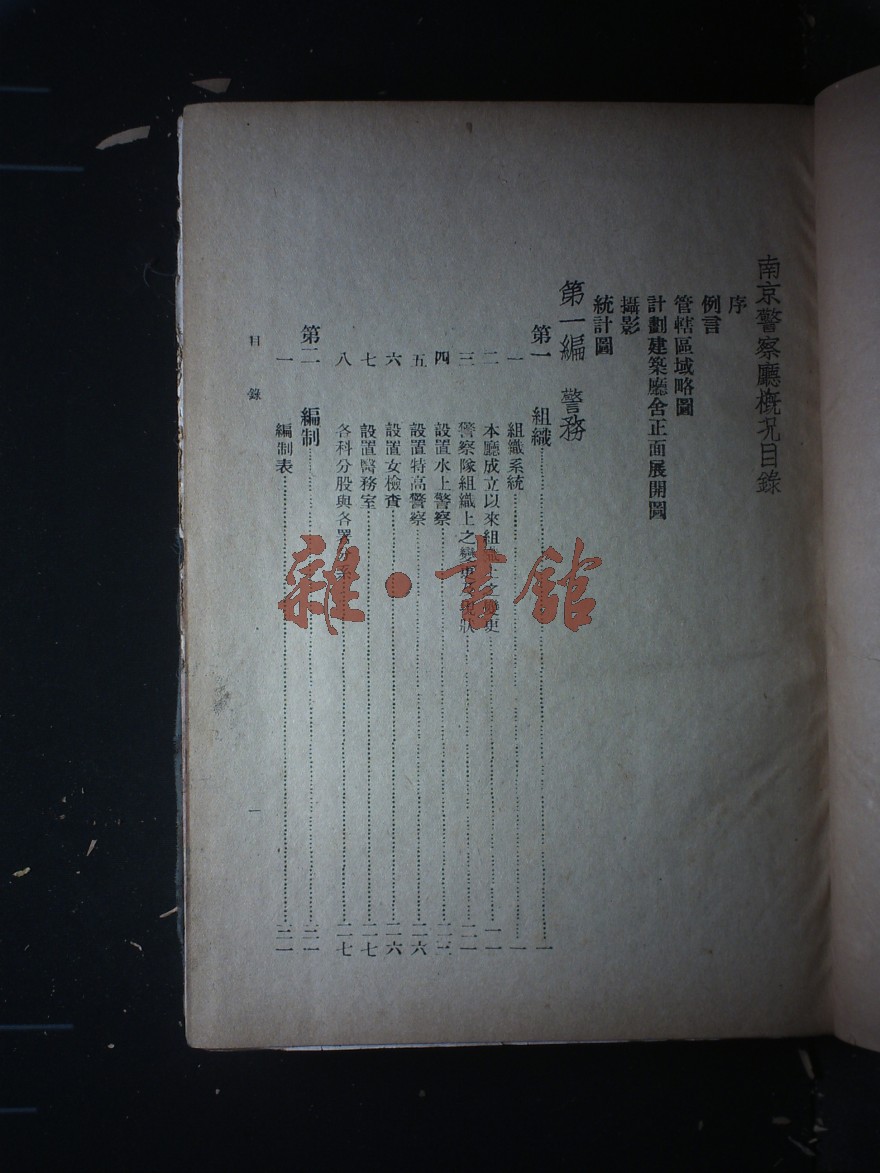 南京警察廳概況目錄
序
例言
管轄區域略圖
計劃建築廳舍正面展開圖
攝影
統計圖
第一編 警務
第一 組織 一
一 組織系統 一
二 本廳成立以來組織上之變更 一一
三 警察隊組織上之變更及現狀
四 設置水上警察
五 設置特高警察 二六
六 設置女檢查 二六
七 設置醫務室 二七
八 各科分股與各署分系 二七
第二 編制
一 編制表
目錄
一
雜·書館